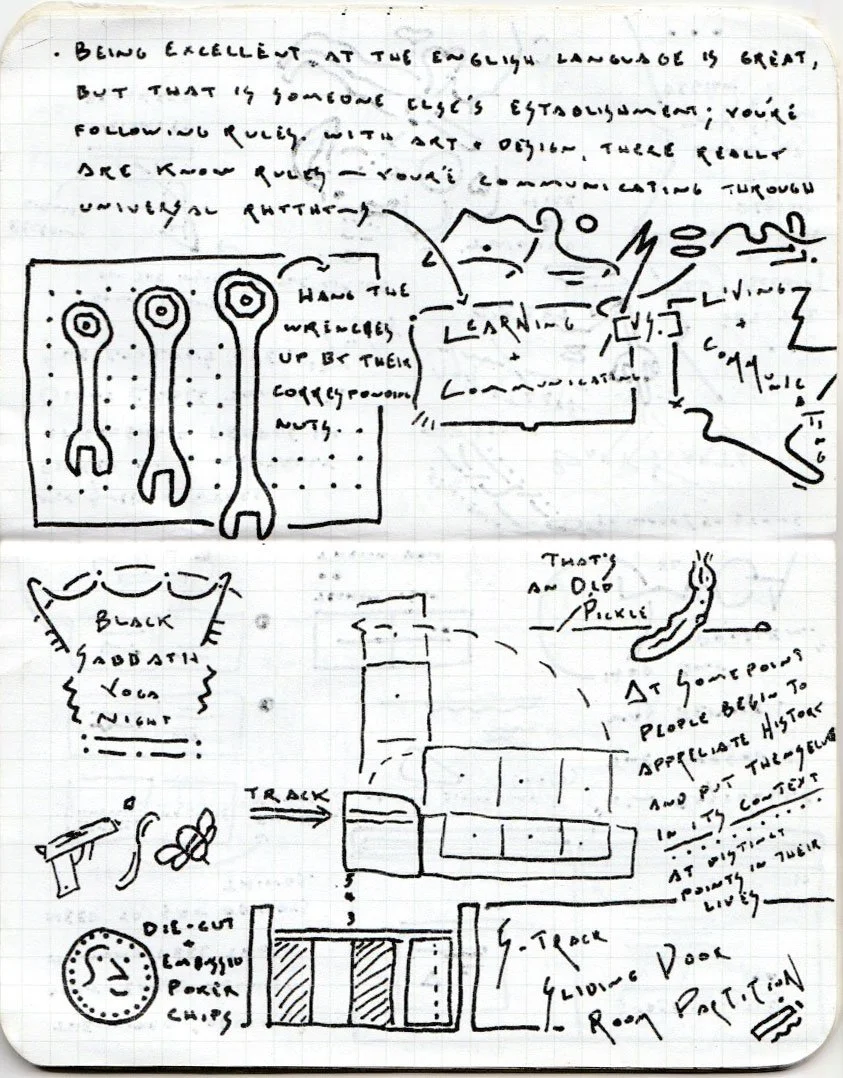 • BEING EXCELLENT AT THE ENGLISH LANGUAGE IS GREAT,
BUT THAT IS SOMEONE ELSE'S ESTABLISHMENT; YOU'RE
FOLLOWING RULES. WITH ART + DESIGN, THERE REALLY
ARE KNOW RULES — YOUR'E COMMUNICATING THROUGH
UNIVERSAL RHTTHMS
HANG THE
WRENCHES
UP BY THEIR
CORRESPONDING
NUTS.
LEARNING
+
COMMUNICATING
VS.
LIVING
+
COMMUNICATING
BLACK
SABBATH
YOGA
NIGHT
THAT'S
AN OLD
PICKLE
AT SOME POINT
PEOPLE BEGIN TO
APPRECIATE HISTORY
AND PUT THEMSELVES
IN ITS CONTEXT
AT DISTINCT
POINTS IN THEIR
LIVES
TRACK
DIE-CUT
+
EMBOSSED
POKER
CHIPS
5
4
3
S-TRACK
SLIDING DOOR
ROOM PARTITION